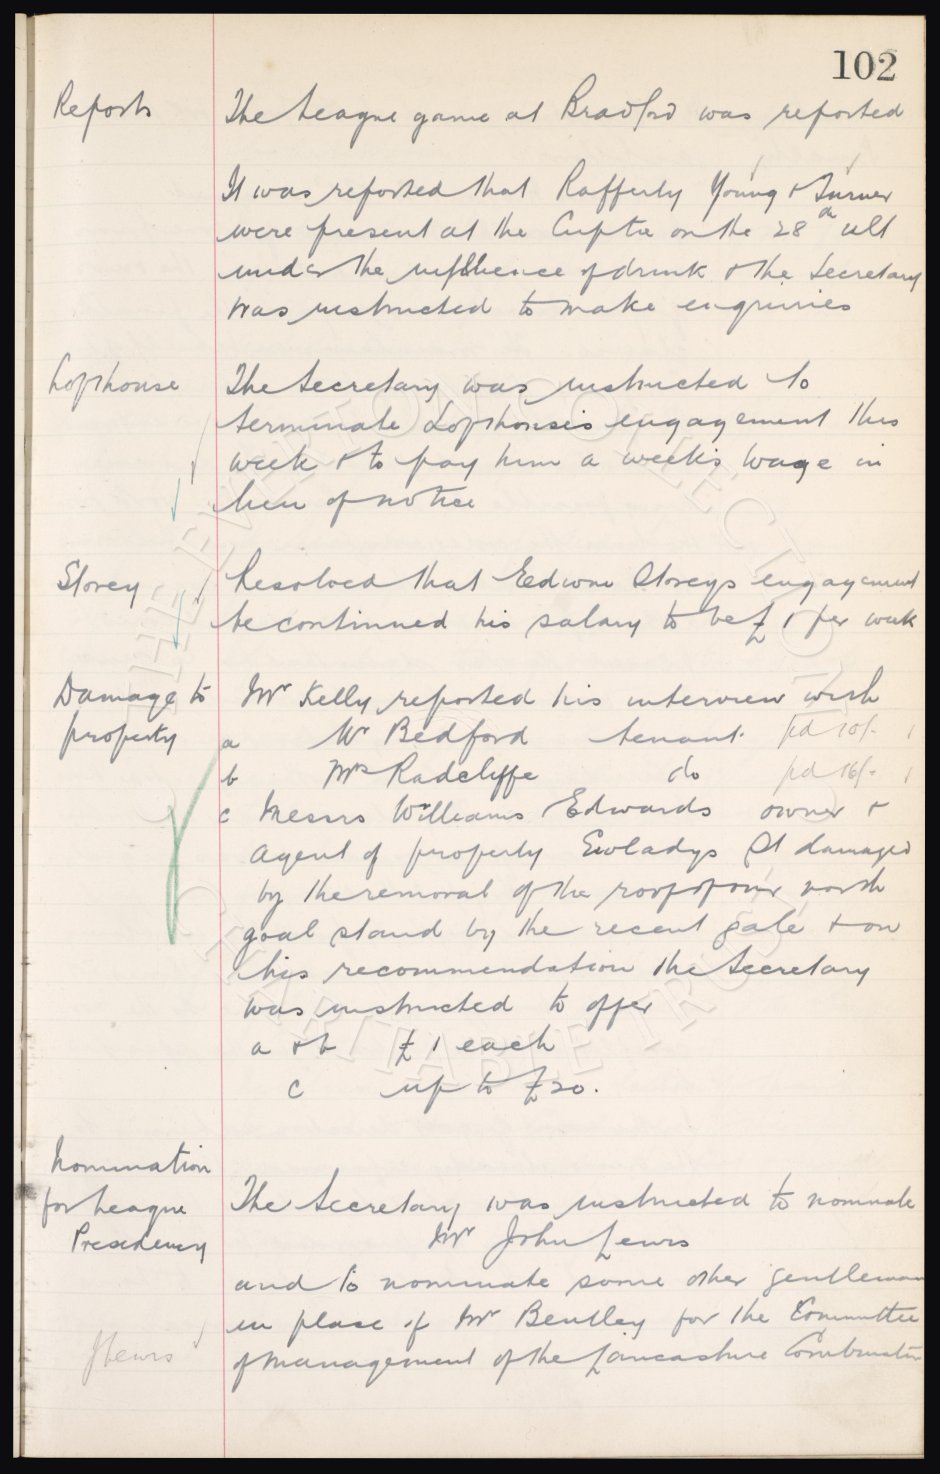 102
Reports The League game at Bradford was reported
It was reported that Rafferty Young & Turner
were present at the Cup tie on the 28th ult
under the influence of drink & the Secretary
was instructed to make enquiries
Lofthouse The Secretary was instructed to
terminate Lofthouse's engagement this
week & to pay him a week's wage in
lieu of notice
Storey Resolved that Edwin Storeys engagement
be continued his salary to be £1 per week
Damage to Mr Kelly reported his interview with
property a Mr Bedford tenant pd 10/-
b Mrs Radcliffe do pd 16/-
c Messrs Williams Edwards owner &
agent of property Gwladys St damaged
by the removal of the roof of our north
goal stand by the recent gale & on
his recommendation the Secretary
was instructed to offer
a & b £1 each
c up to £20.
Nomination
for League The Secretary was instructed to nominate
Presidency Mr John Lewis
and to nominate some other gentleman
in place of Mr Bentley for the Committee
JLewis of Management of the Lancashire Combination
THE EVERTON COLLECTION
CHARITABLE TRUST